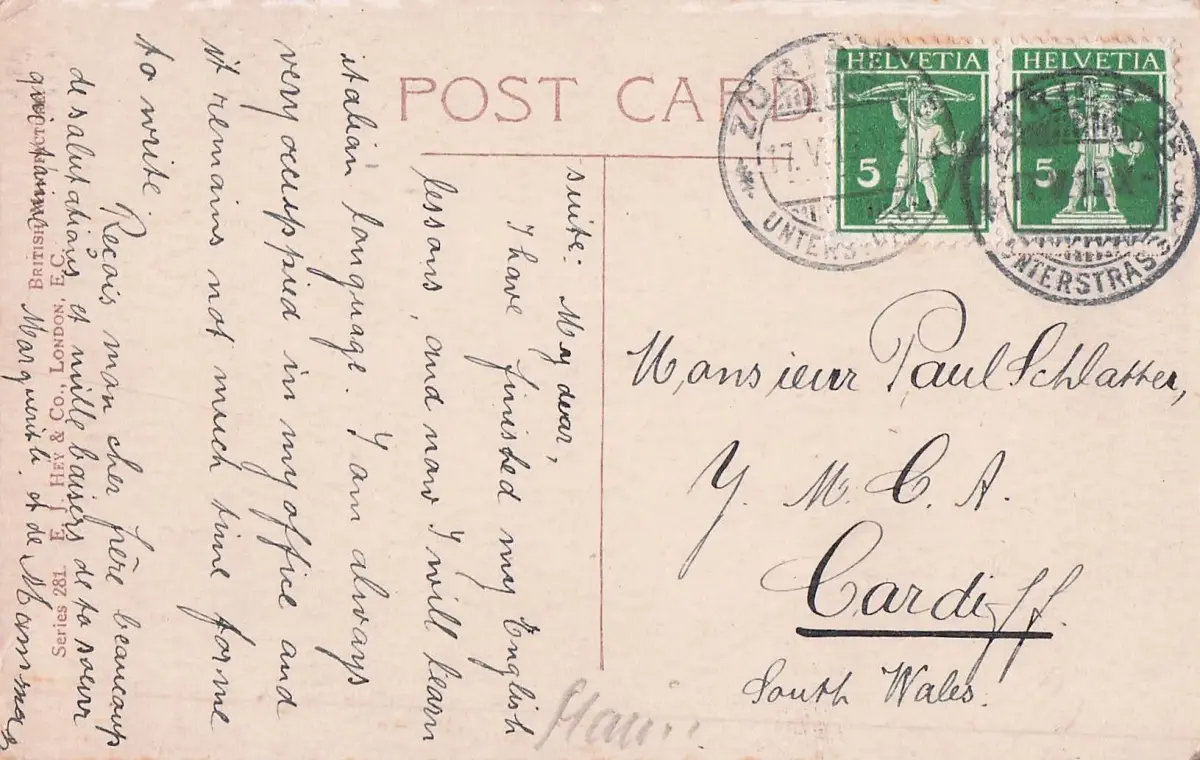 POST CARD
HELVETIA
5
HELVETIA
5
17.V.
UNTERSTRASS
UNTERSTRASS
suite: My dear,
I have finisted my English
lessons, and now I will learn
italian language. I am always
very occuppied in my office and
it remains not much time for me
to write
Reçois mon cher frère beaucoup
de salutations et mille baisers de ta soeur
Marguerite et de Maman
Monsieur Paul Schlatter,
Y. M. C. A.
Cardiff
South Wales.
BRITISH MANUFACTURE
Series 281. E. J. HEY & CO., LONDON, E.C.